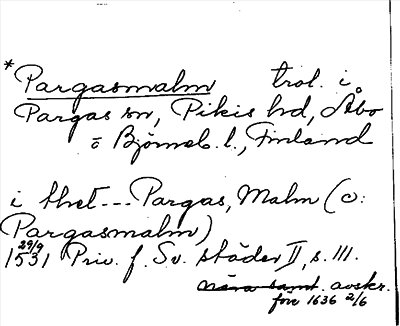 *Pargasmalm trol. i
Pargas sn, Pikis hd, Åbo
o Björneb. l., Finland
i thet --- Pargas, Malm (o:
Pargasmalm)
29/9
1531 Priv. f. Sv. städer II, s. 111.
nära samt. avskr.
före 1636 2/6